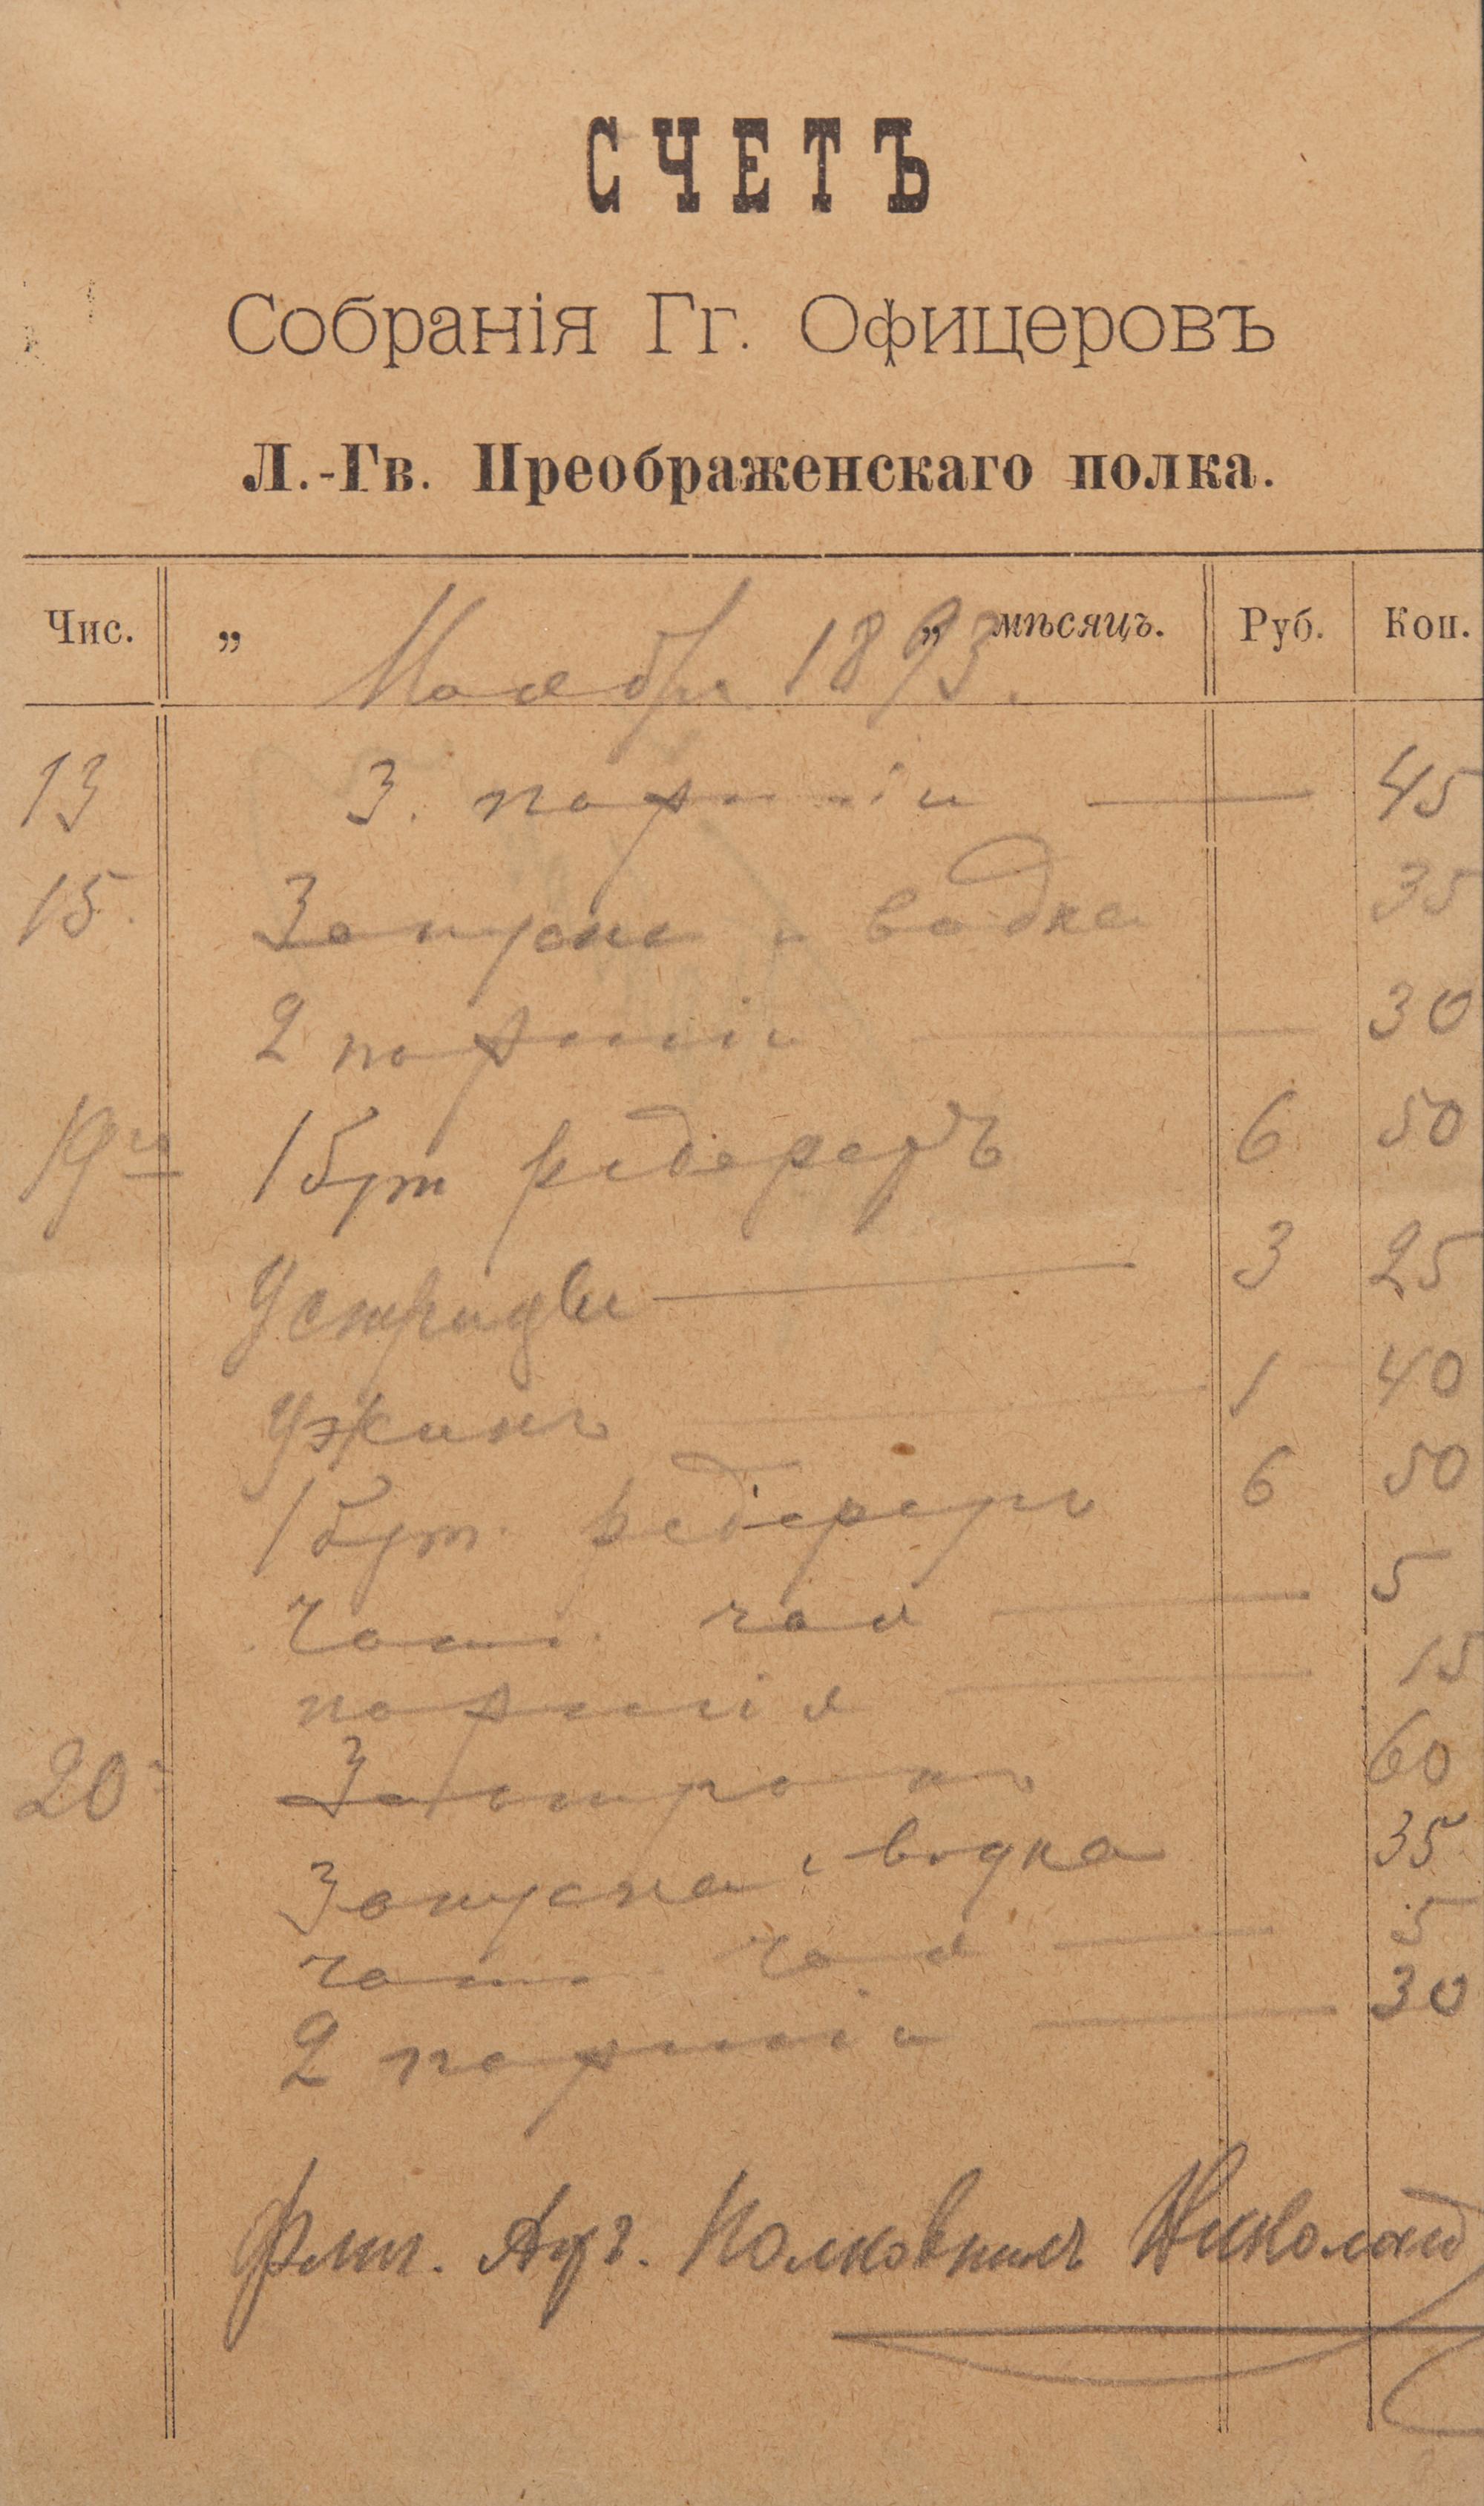 СЧЕТЪ
Собранія Гг. Офицеровъ
Л.-Гв. Преображенскаго полка.
Чис. „ Ноября 1893. „ мѣсяцъ. Руб. Коп.
13 3. порціи — 45
15. Закуска и водка 35
2 порціи — 30
19го 1 бут редереръ 6 50
Устрицы — 3 25
Ужинъ — 1 40
1 бут. редереръ 6 50
чаш. чая — 5
порція — 15
20. Завтракъ 60
Закуска и водка 35
чаш. чая — 5
2 порціи — 30
Флиг. Адъ. Полковникъ Николай